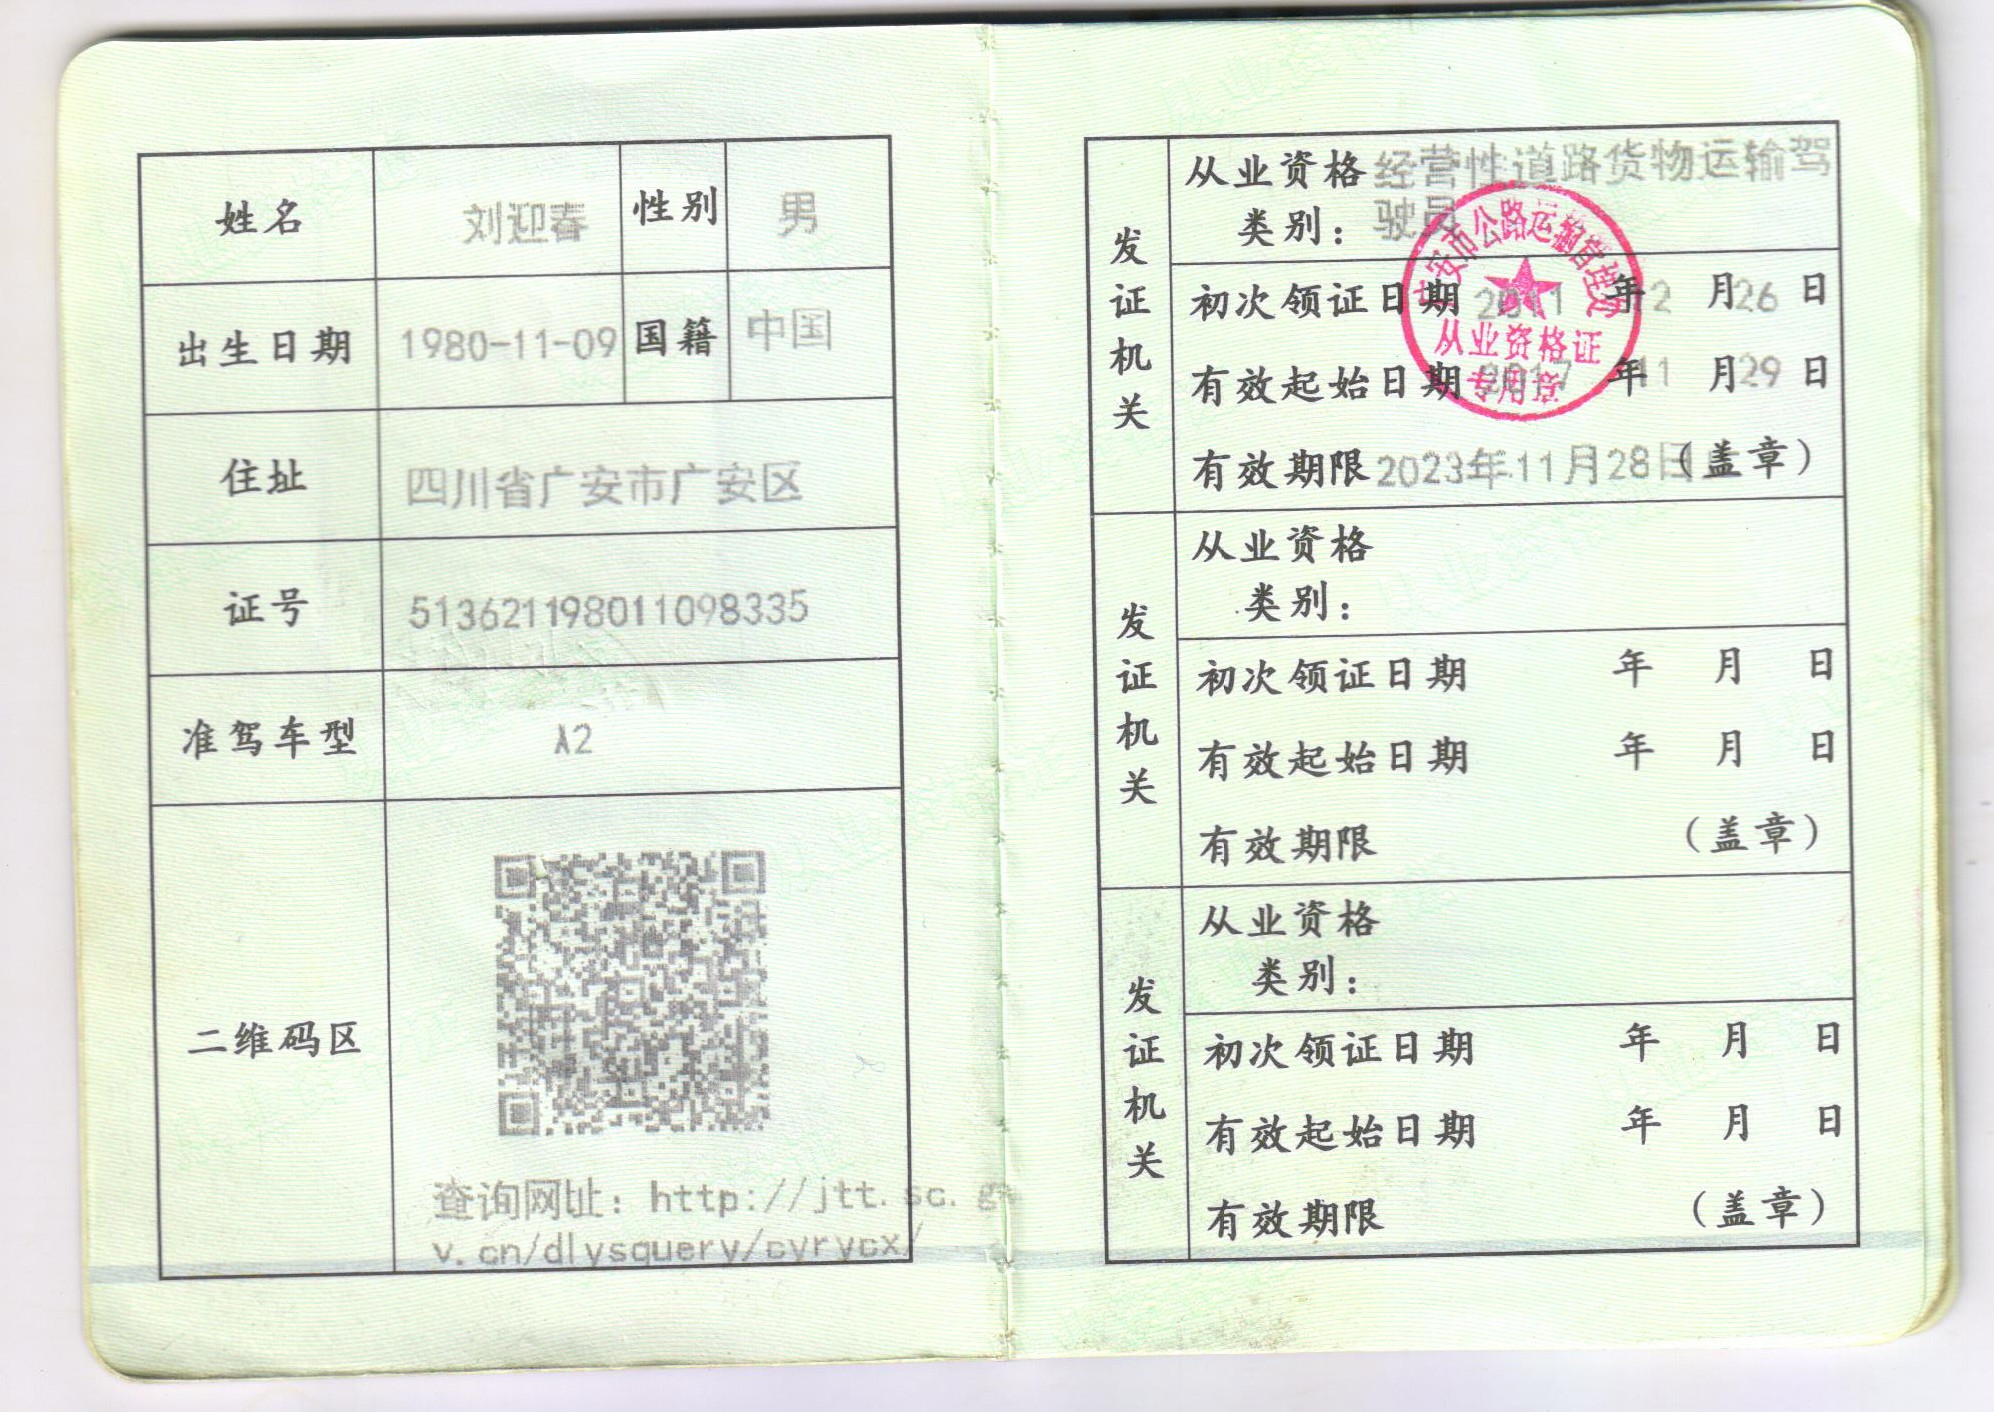 姓名 刘迎春 性别 男
出生日期 1980-11-09 国籍 中国
住址 四川省广安市广安区
证号 513621198011098335
准驾车型 A2
二维码区
查询网址：http://jtt.sc.g
v.cn/dlysquery/cyrycx/
发证机关
从业资格 经营性道路货物运输驾
类别：驶员
初次领证日期 2011 年 12 月 26 日
有效起始日期 2017 年 11 月 29 日
有效期限 2023年11月28日（盖章）
广安市公路运输管理处
从业资格证
专用章
发证机关
从业资格
类别：
初次领证日期 年 月 日
有效起始日期 年 月 日
有效期限 （盖章）
发证机关
从业资格
类别：
初次领证日期 年 月 日
有效起始日期 年 月 日
有效期限 （盖章）